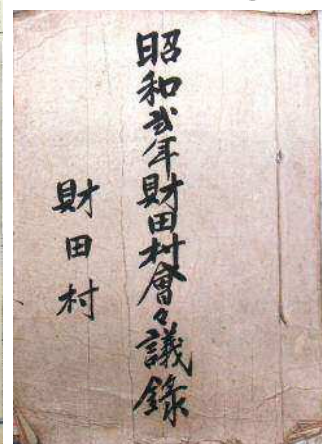 昭和弐年財田村會々議錄
財田村